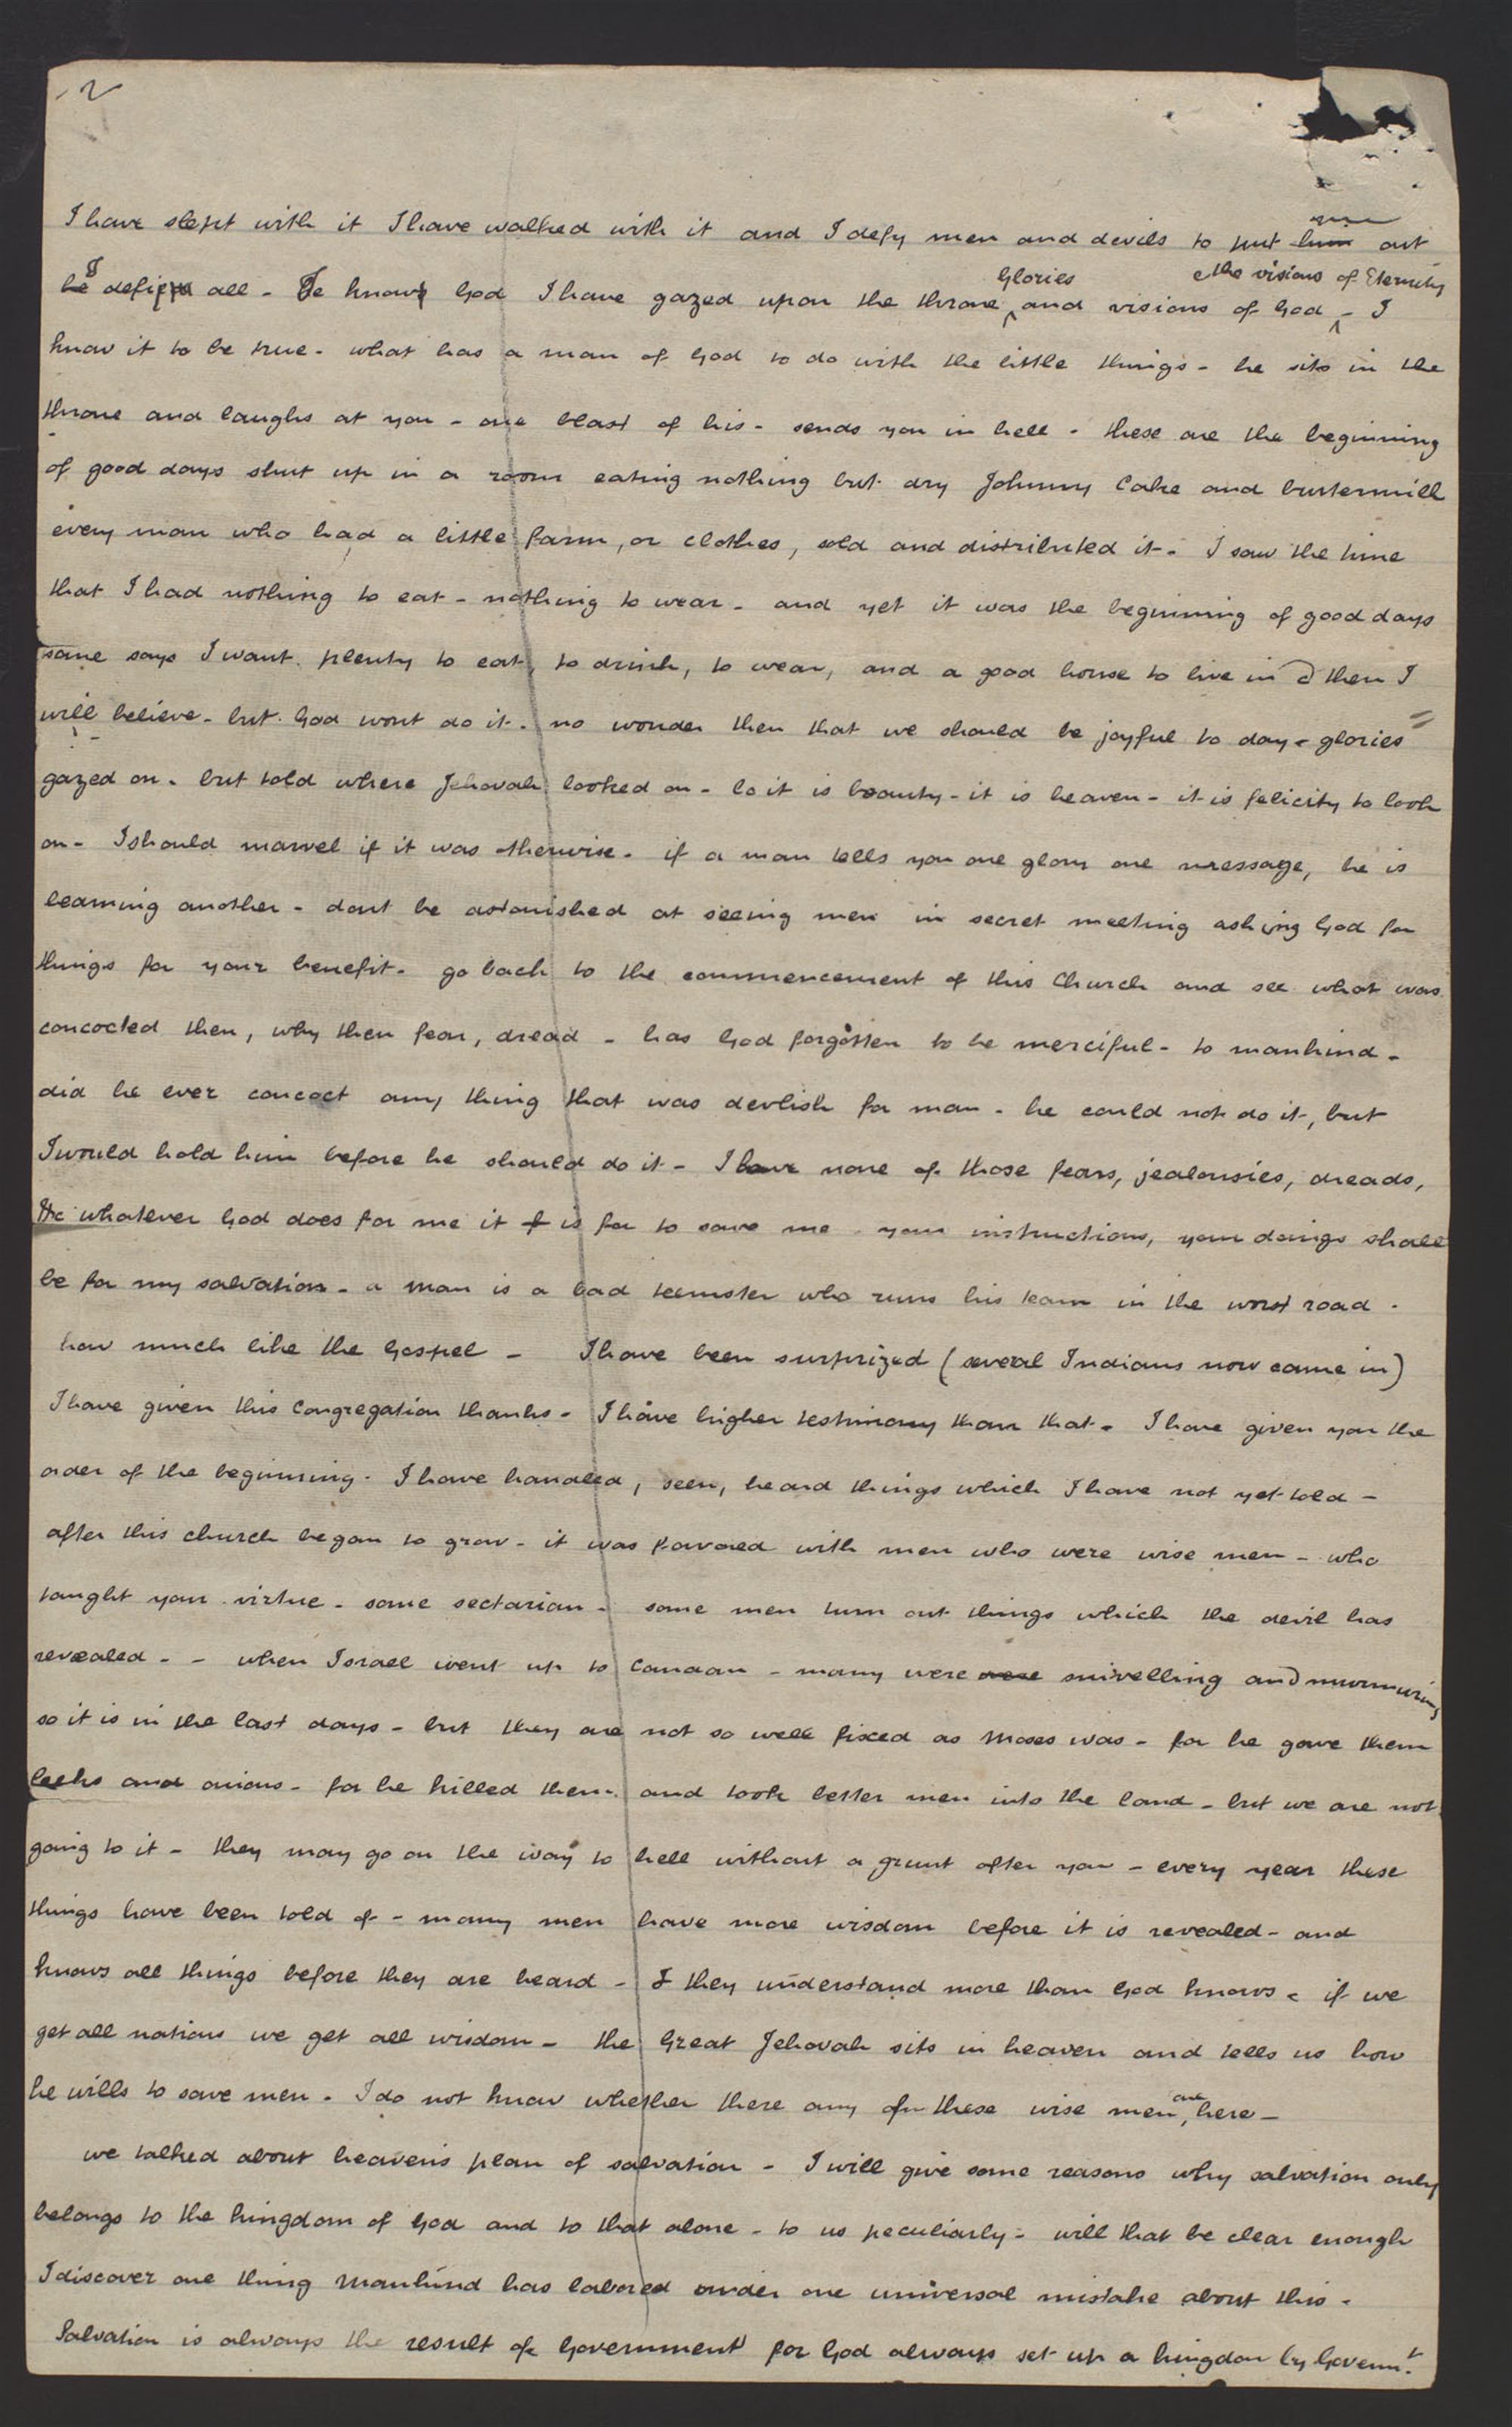 2
I have slept with it I have walked with it and I defy men and devils to put him me out
he I defies all - Je knows God I have gazed upon the throne Glories and visions of God & the visions of Eternity - I
know it to be true - what has a man of God to do with the little things - he sits in the
throne and laughs at you - one blast of his - sends you in hell - these are the beginning
of good days shut up in a room eating nothing but dry Johnny Cake and buttermilk
every man who had a little farm, or clothes, sold and distributed it - I saw the time
that I had nothing to eat - nothing to wear - and yet it was the beginning of good days
some says I want plenty to eat, to drink, to wear, and a good house to live in & then I
will believe - but God wont do it - no wonder then that we should be joyful to day - glories
gazed on - but told where Jehovah looked on - lo it is beauty - it is heaven - it is felicity to look
on - I should marvel if it was otherwise - if a man tells you one glory one message, he is
learning another - dont be astonished at seeing men in secret meeting asking God for
things for your benefit - go back to the commencement of this Church and see what was
concocted then, why then fear, dread - has God forgotten to be merciful - to mankind -
did he ever concoct any thing that was devlish for man - he could not do it, but
I would hold him before he should do it - I have none of those fears, jealousies, dreads,
&c whatever God does for me it is for to save me your instructions, your doings shall
be for my salvation - a man is a bad teemster who runs his team in the worst road -
how much like the Gospel - I have been surprized (several Indians now came in)
I have given this Congregation thanks - I have higher testimony than that - I have given you the
order of the beginning - I have handled, seen, heard things which I have not yet told -
after this church began to grow - it was favored with men who were wise men - who
taught your virtue - some sectarian - some men turn out things which the devil has
revealed - - when Israel went up to Canaan - many were were snivelling and murmuring
so it is in the last days - but they are not so well fixed as Moses was - for he gave them
leeks and onions - for he killed them - and took better men into the land - but we are not
going to it - they may go on the way to hell without a grunt after you - every year these
things have been told of - many men have more wisdom before it is revealed - and
knows all things before they are heard - & they understand more than God knows - if we
get all nations we get all wisdom - the Great Jehovah sits in heaven and tells us how
he wills to save men - I do not know whether there any of these wise men are here -
we talked about heaven's plan of salvation - I will give some reasons why salvation only
belongs to the kingdom of God and to that alone - to us peculiarly - will that be clear enough
I discover one thing Mankind has labored under one universal mistake about this -
Salvation is always the result of Government for God always set up a kingdom by Governt.